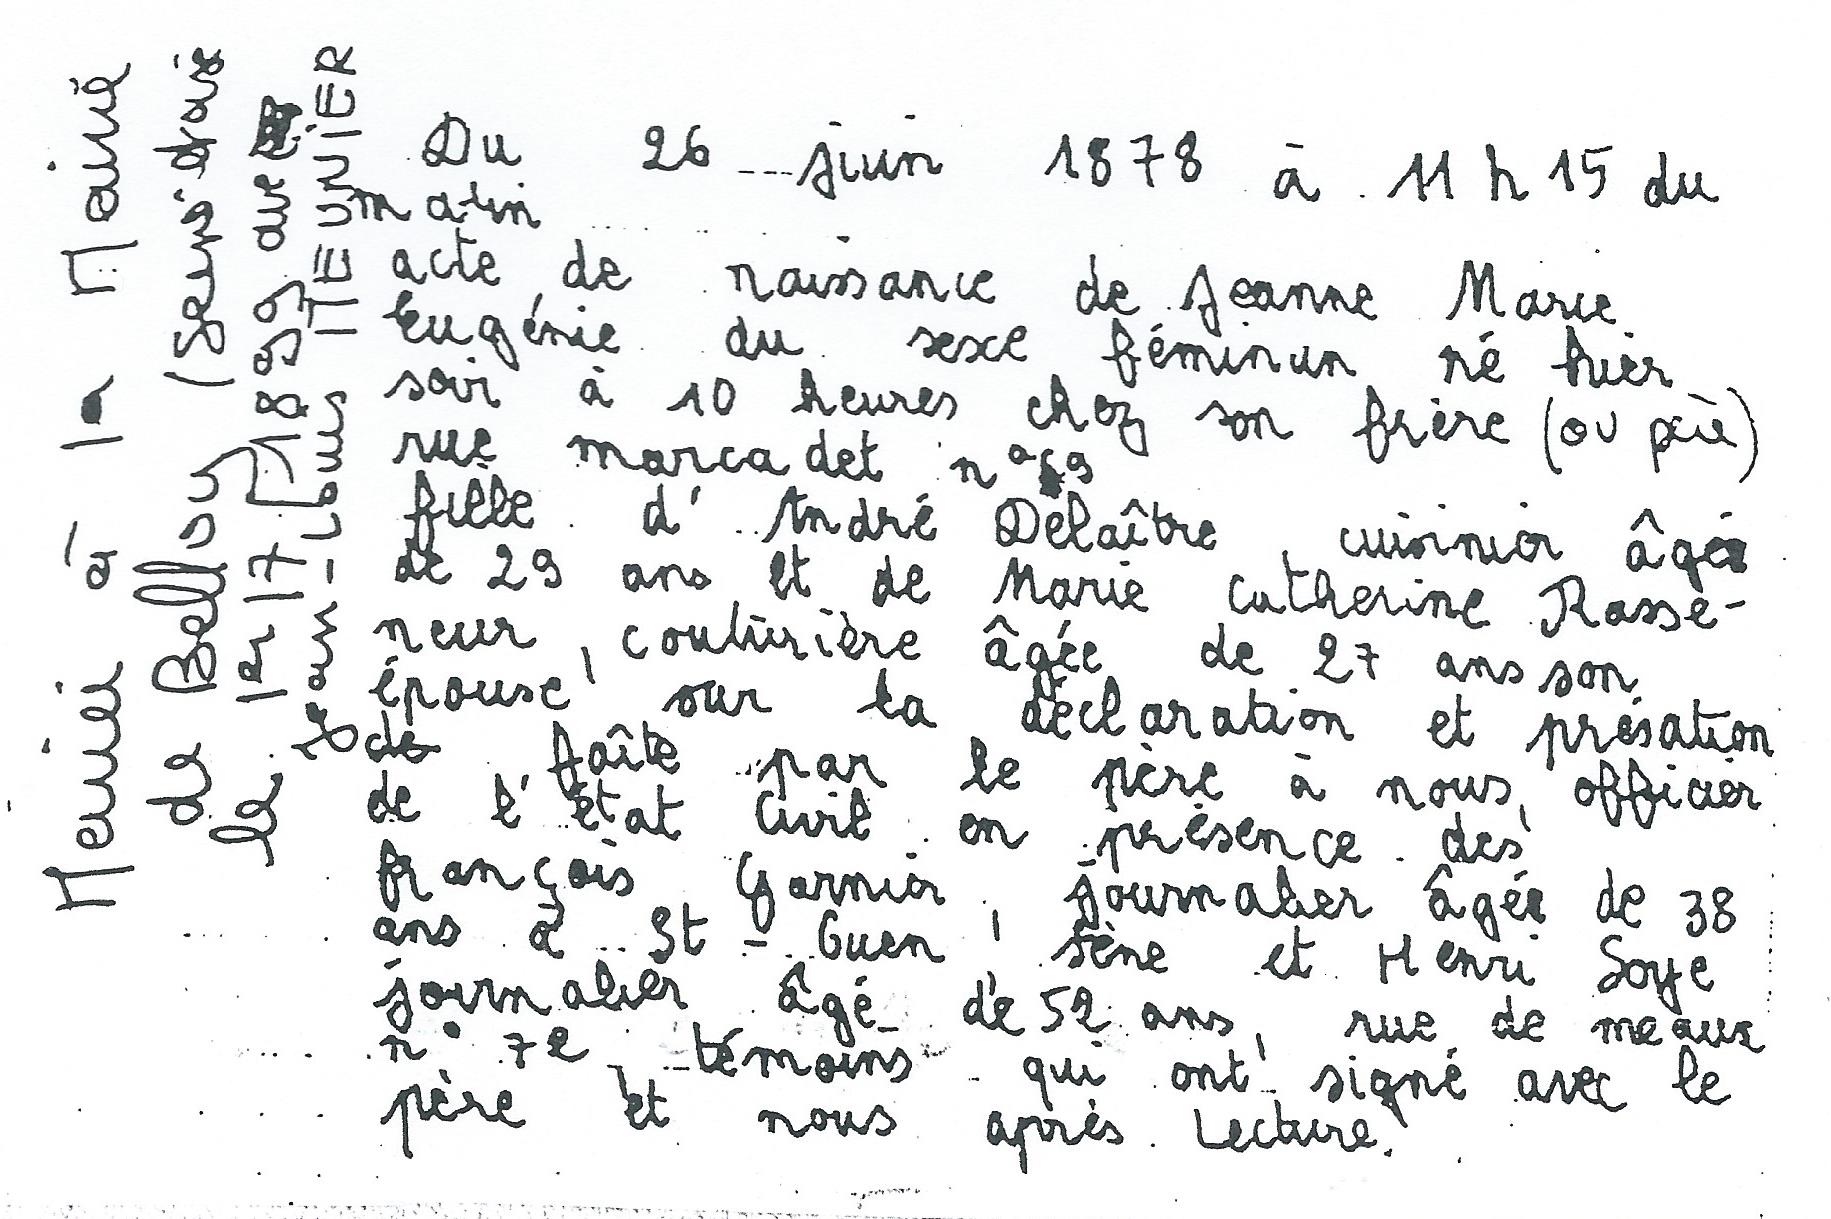 Mariée à la Mairie
de Belley
le 17 1899 avec
Jean-Louis ITEUNIER
Du 26 juin 1878 à 11 h 15 du
matin
acte de naissance de Jeanne Marie
Eugénie du sexe féminin né hier
soir à 10 heures chez son frère (ou père)
rue marcadet n°
fille d'André Delaître, cuisinier âgé
de 29 ans et de Marie Catherine Rasse-
neur, couturière âgée de 27 ans son
épouse, sur la déclaration et présation
de faîte par le père à nous, officier
de l'état Civil en présence des
françois Garnier, journalier âgée de 38
ans à St-Ouen, sène et Henri Soye
journalier âgé de 52 ans, rue de meaux
n° 72 témoins qui ont signé avec le
père et nous après Lecture.